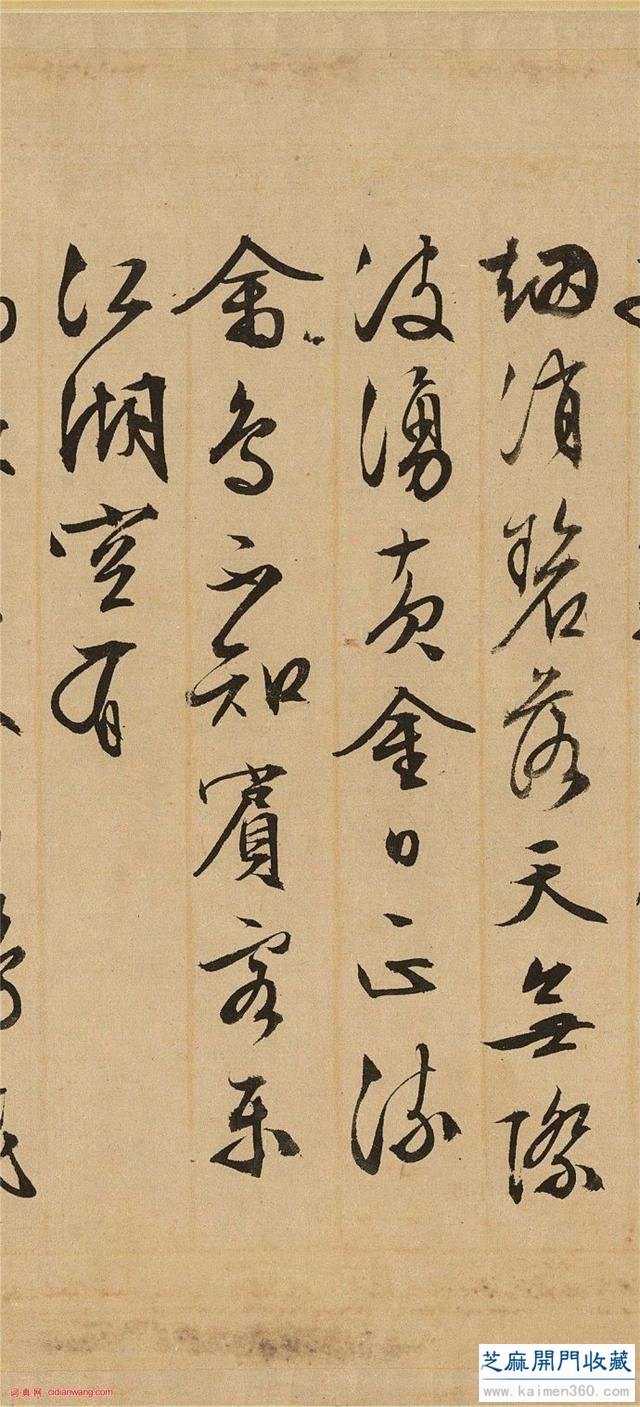 烟消碧落天無際
波湧黄金日正流
禽鳥不知賓客樂
江湖空有
芝麻開門收藏
www.kaimen360.com
词典网 - cidianwang.com